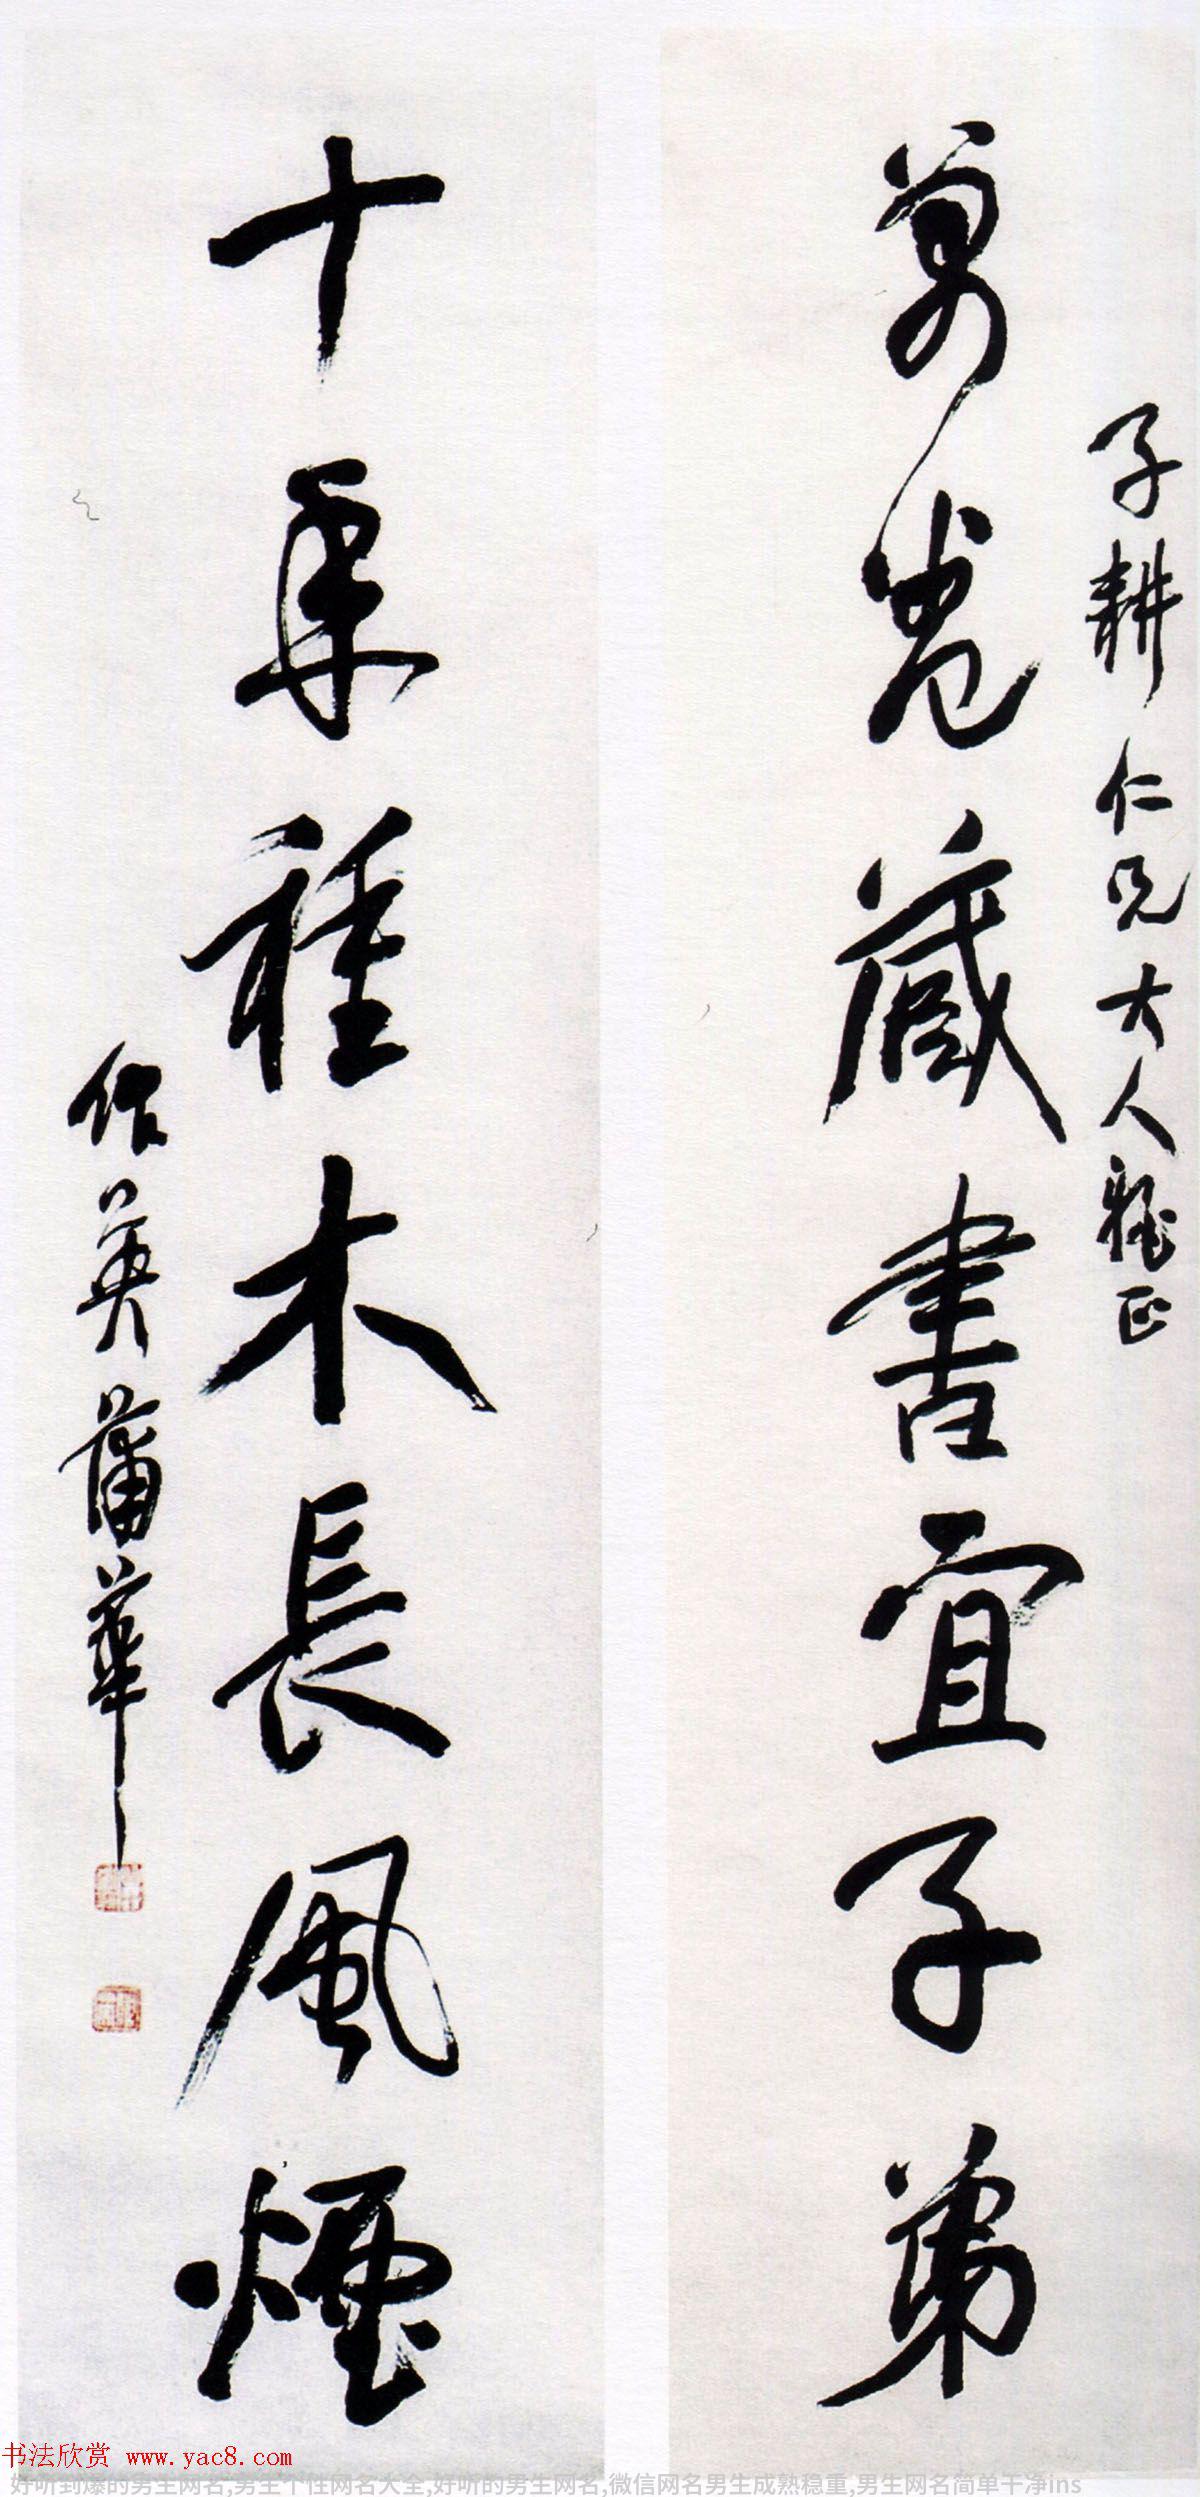 子耕仁兄大人雅正
萬卷藏書宜子弟
十年種木長風煙
作英蒲華
书法欣赏 www.yac8.com
好听到爆的男生网名,男生个性网名大全,好听的男生网名,微信网名男生成熟稳重,男生网名简单干净ins